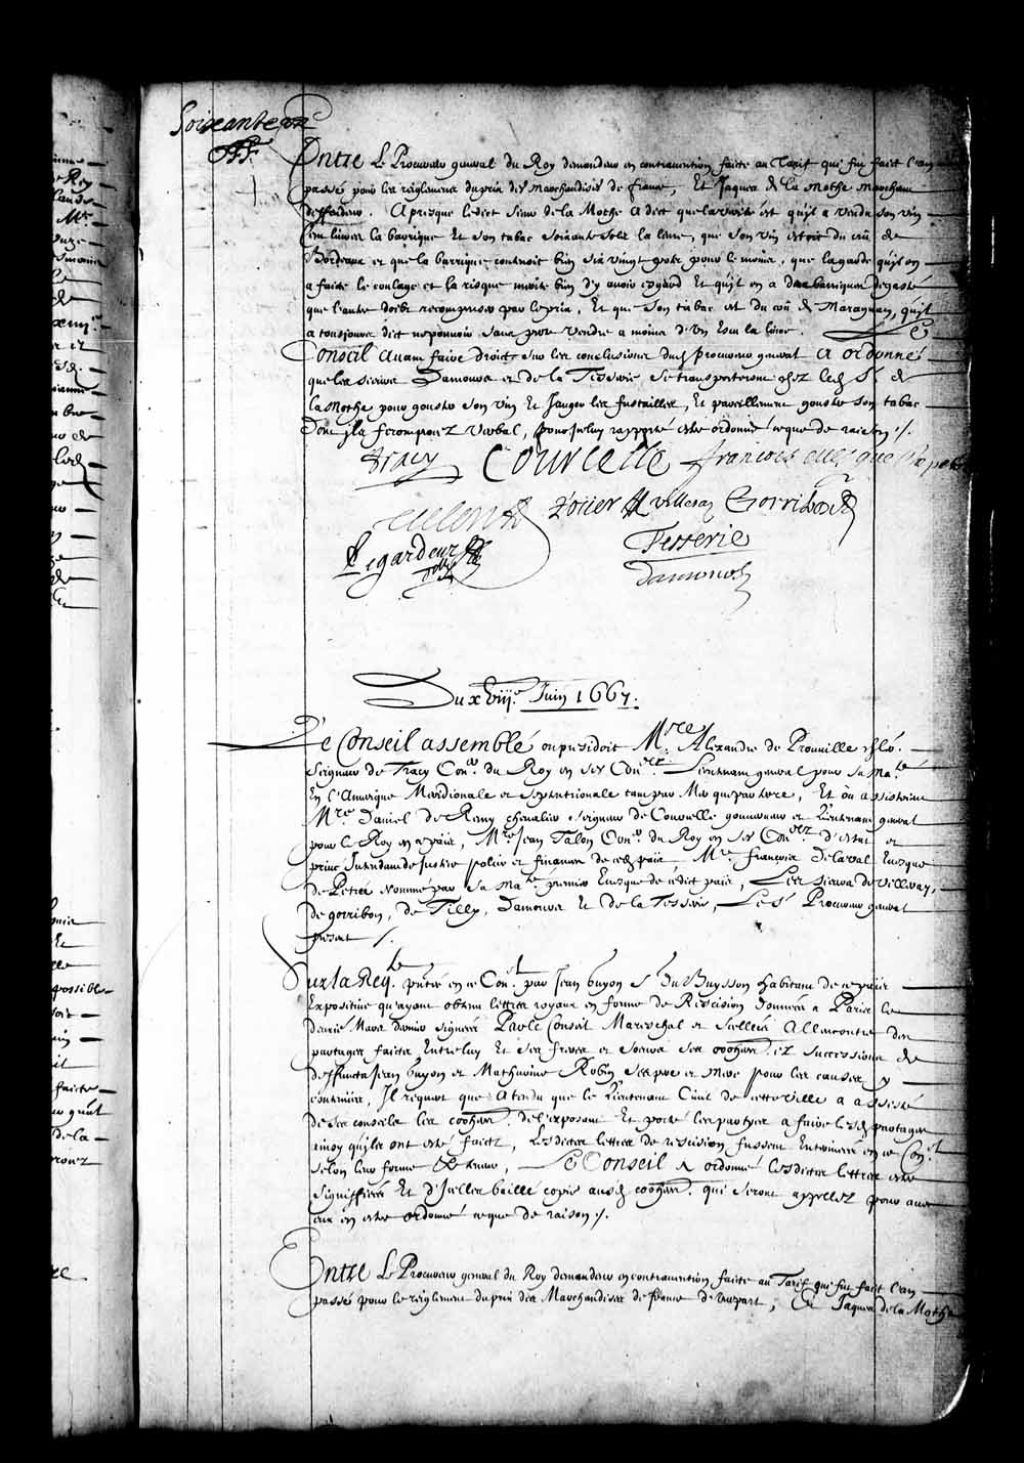 Soixante
Entre Le Procureur general du Roy demandeur en contravention faicte au Tarif qui fut faict l'an
passé pour les reiglemens du prix des marchandises de france, Et Jaques de la Mothe Marchant
deffendeur. Apresque ledict Sieur de la Mothe a dict que la verité est qu'il a vendu son vin
livres la barrique Et son tabac soixante solz la livre, que son vin estoit du crû de
Bordeaux et que la barrique contenoit bien six vingt pots pour le moins, que la garde qu'il en
a faite le coulage et la risque merite bien d'y avoir egard Et qu'il en a deux barriques de gasté
que l'autre doibt recompenser par le prix, Et que son tabac est du crû de Maragnan, qu'il
a tousjours dict ne pouvoir sans perte vendre a moins d'un escu la livre. Le
Conseil avant faire droict sur les conclusions dud. procureur general a ordonné
que les sieurs Damours et de la Tesserie se transporteront chez led. Sr. de
la Mothe pour gouster son vin Et Jauger les fustailles, Et pareillement gouster son tabac
Dont ils feront procez verbal, pour iceluy rapporté estre ordonné ce que de raison ./.
Tracy Courcelle françois evesque de petrée
Talon Rouer Villeray Gorribon
Legardeur Tilly Tesserie
Damours
Du xviije. Juin 1667.
Le Conseil assemblé ou presidoit Mre. Alexandre de Prouville chlr.
Seigneur de Tracy Coner. du Roy en ses Con. Lieutenant general pour sa Ma.té
En l'Amerique Meridionale et Septentrionale tant par Mer que par terre, Et ou assistoient
Mre. Daniel de Remy chevalier Seigneur de Courcelle gouverneur et Lieutenant general
pour le Roy en ce païs, Mre. Jean Talon Coner. du Roy en ses Con. d'estat et
privé Intendant de Justice police et finances de ced. païs. Mre. françois Delaval Evesque
de Petrée Nommé par sa Ma.té premier Evesque de cedict païs, Les sieurs de Villeray,
de gorribon, de Tilly, Damours Et de la Tesserie, Le Sr. Procureur general
present ./.
Sur la Req.te p̄ntée en ce Con.l par Jean Guyon Sr. Du Buysson habitant de ce païs
Expositive qu'ayant obtenu lettres royaux en forme de Rescision donnees a Paris le
Mars dernier signées Par le Conseil Mareschal et scellées A l'encontre des
partages faicts Entre luy Et ses freres et soeurs ses coher. et successions de
deffuncts Jean Guyon et Mathurine Robin ses pere et mere pour les causes y
contenües, Il requiert que Atendu que le Lieutenant Civil de cette ville a assisté
de ses conseils les coher. de l'exposant Et porté les partyes a faire lesd. partages
ainsy qu'ils ont esté faicts, Lesdictes lettres de rescision fussent Enterinées en ce Con.l
selon leur forme Et teneur, Le Conseil A ordonné lesdictes lettres estre
signiffiées Et d'Icelles baillé copie ausd. coher. qui seront appellez pour avec
eux en estre ordonné ce que de raison ./.
Entre Le Procureur general du Roy demandeur en contravention faicte au Tarif qui fut faict l'an
passé pour le reiglement du prix des Marchandises de france d'une part, Et Jaques de la Mothe